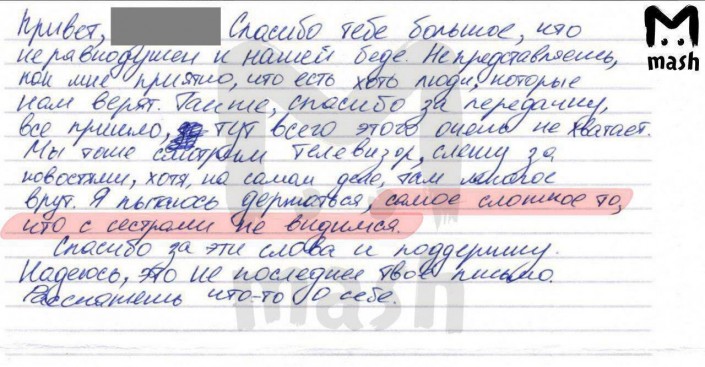 Привет, Спасибо тебе большое, что
mash
неравнодушен к нашей беде. Не представляешь,
как мне приятно, что есть хоть люди, которые
нам верят. Также, спасибо за передачку,
все пришло, тут всего этого очень не хватает.
Мы тоже смотрим телевизор, слежу за
новостями, хотя, на самом деле, там многое
врут. Я пытаюсь держаться, самое сложное то,
что с сестрами не видимся.
Спасибо за эти слова и поддержку.
Надеюсь, это не последнее твое письмо.
Расскажешь что-то о себе.
mash